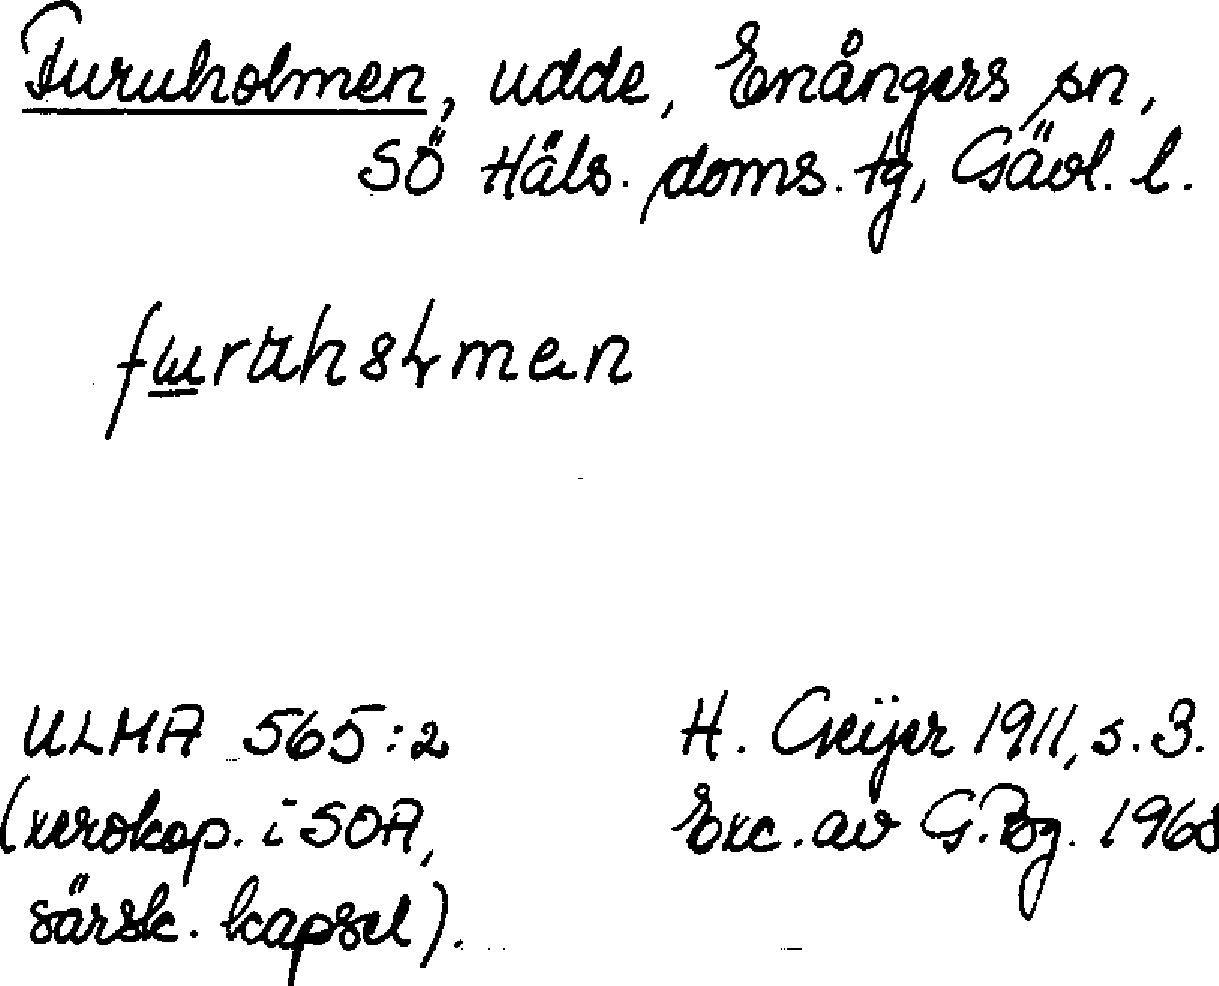 Furuholmen, udde, Enångers sn,
SÖ Häls. doms. tg, Gävl. l.
ULMA 565:2
(xerokop. i SOA,
särsk. kapsel).
H. Geijer 1911, s. 3.
Exc. av G. Bg. 1968